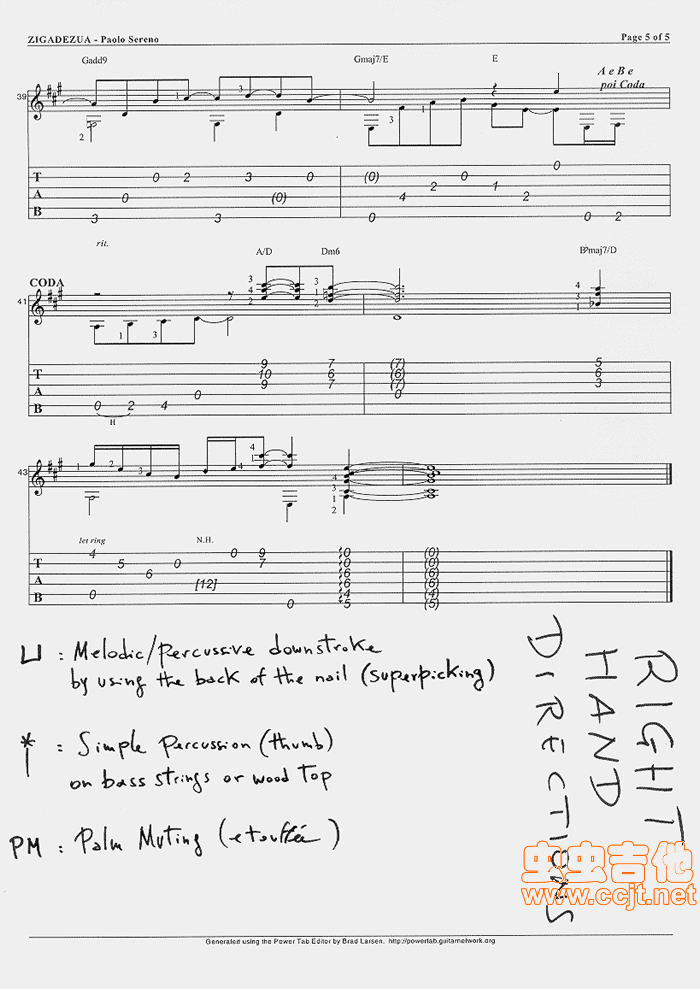 ZIGADEZUA - Paolo Sereno Page 5 of 5
Gadd9 Gmaj7/E E A e B e
poi Coda
39
1 3
2
T A B
0 2 3 0 (0) 2 0 1 0
0 (0) 4 2
3 3 0 0 2
rit.
A/D Dm6 B♭maj7/D
CODA
41
T A B
9 7 (7) 5
10 6 (6) 6
9 7 (7) 3
0 0
0 2 4
H
43
let ring N.H.
T A B
4 0 9 0 (0)
5 0 7 0 (0)
6 6 (6)
[12] 6 (6)
0 4 (4)
0 5 (5)
⊔ : Melodic/percussive downstroke
by using the back of the nail (superpicking)
* : Simple Percussion (thumb)
on bass strings or wood top
PM : Palm Muting (etouffée)
RIGHT
HAND
DIRECTIONS
虫虫吉他
www.ccjt.net
Generated using the Power Tab Editor by Brad Larsen. http://powertab.guitarnetwork.org